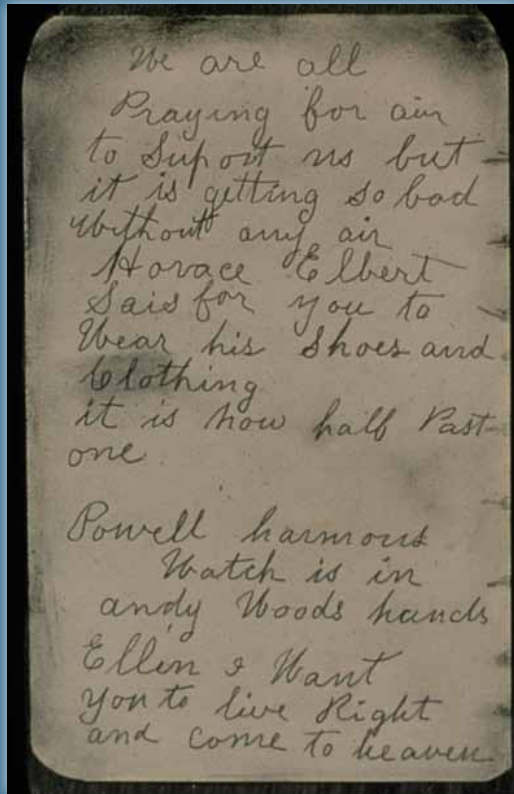 We are all
Praying for air
to Suport us but
it is getting so bad
Without any air
Horace Elbert
Sais for you to
Wear his Shoes and
Clothing
it is now half Past
one
Powell harmons
Watch is in
andy Woods hands
Ellen I Want
you to live Right
and come to heaven